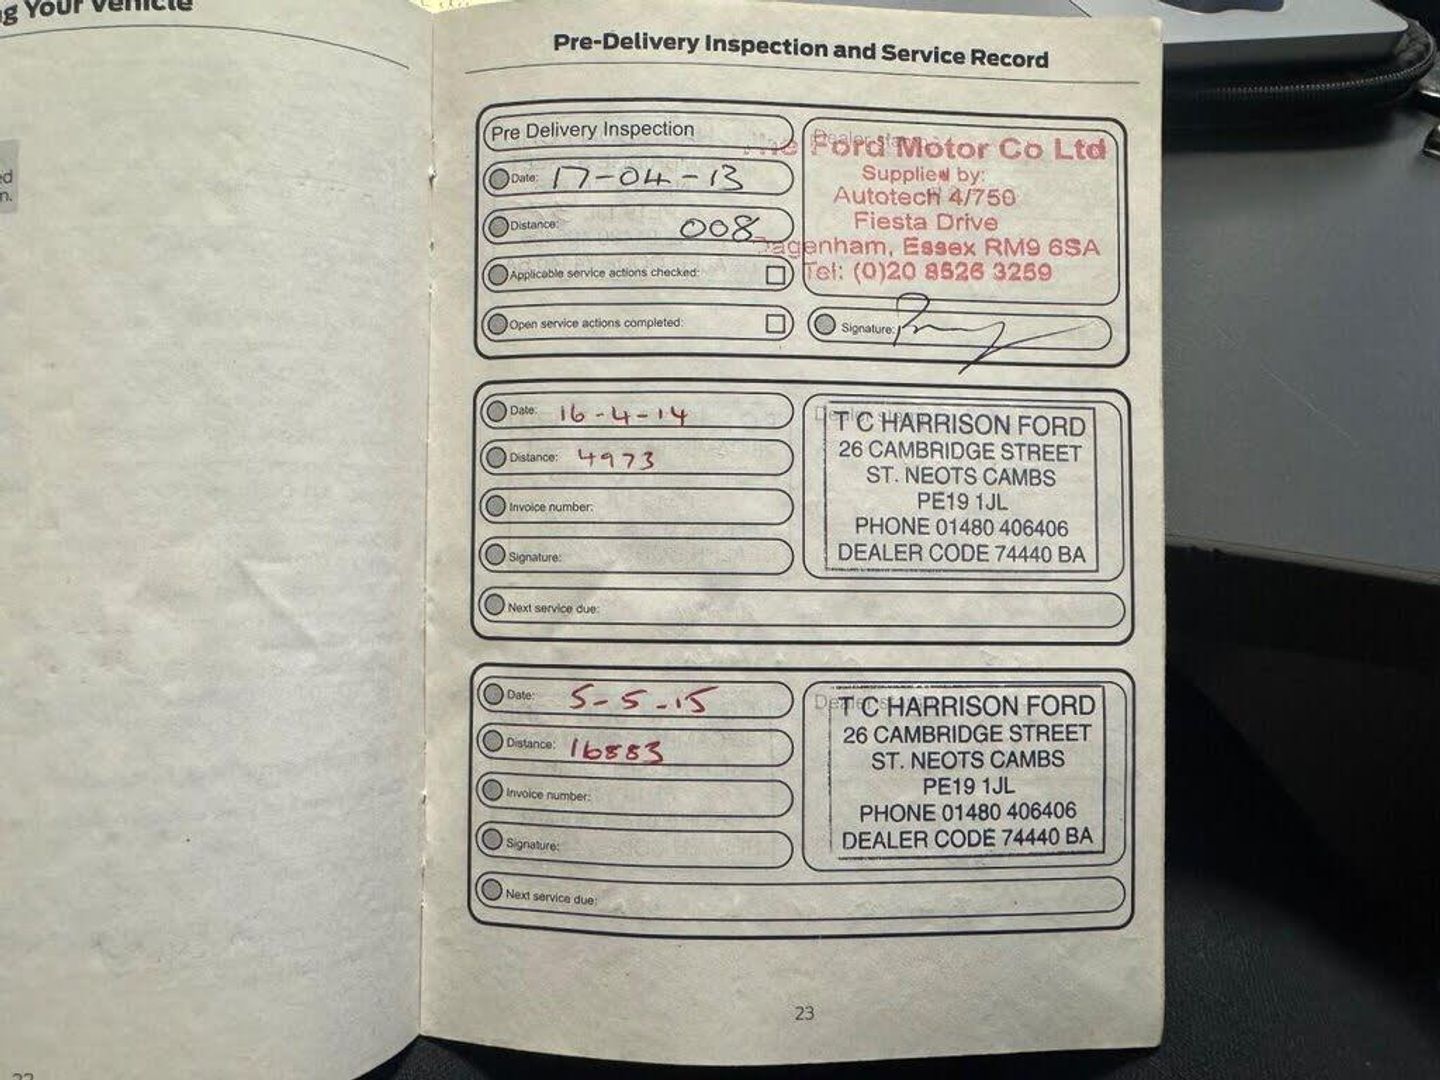 g Your Vehicle
ed
n.
Pre-Delivery Inspection and Service Record
Pre Delivery Inspection
Date: 17-04-13
Distance: 008
Applicable service actions checked:
Open service actions completed:
Dealer
The Ford Motor Co Ltd
Supplied by:
Autotech 4/750
Fiesta Drive
Dagenham, Essex RM9 6SA
Tel: (0)20 8526 3259
Signature:
Date: 16-4-14
Distance: 4973
Invoice number:
Signature:
Next service due:
T C HARRISON FORD
26 CAMBRIDGE STREET
ST. NEOTS CAMBS
PE19 1JL
PHONE 01480 406406
DEALER CODE 74440 BA
Date: 5-5-15
Distance: 16883
Invoice number:
Signature:
Next service due:
T C HARRISON FORD
26 CAMBRIDGE STREET
ST. NEOTS CAMBS
PE19 1JL
PHONE 01480 406406
DEALER CODE 74440 BA
23